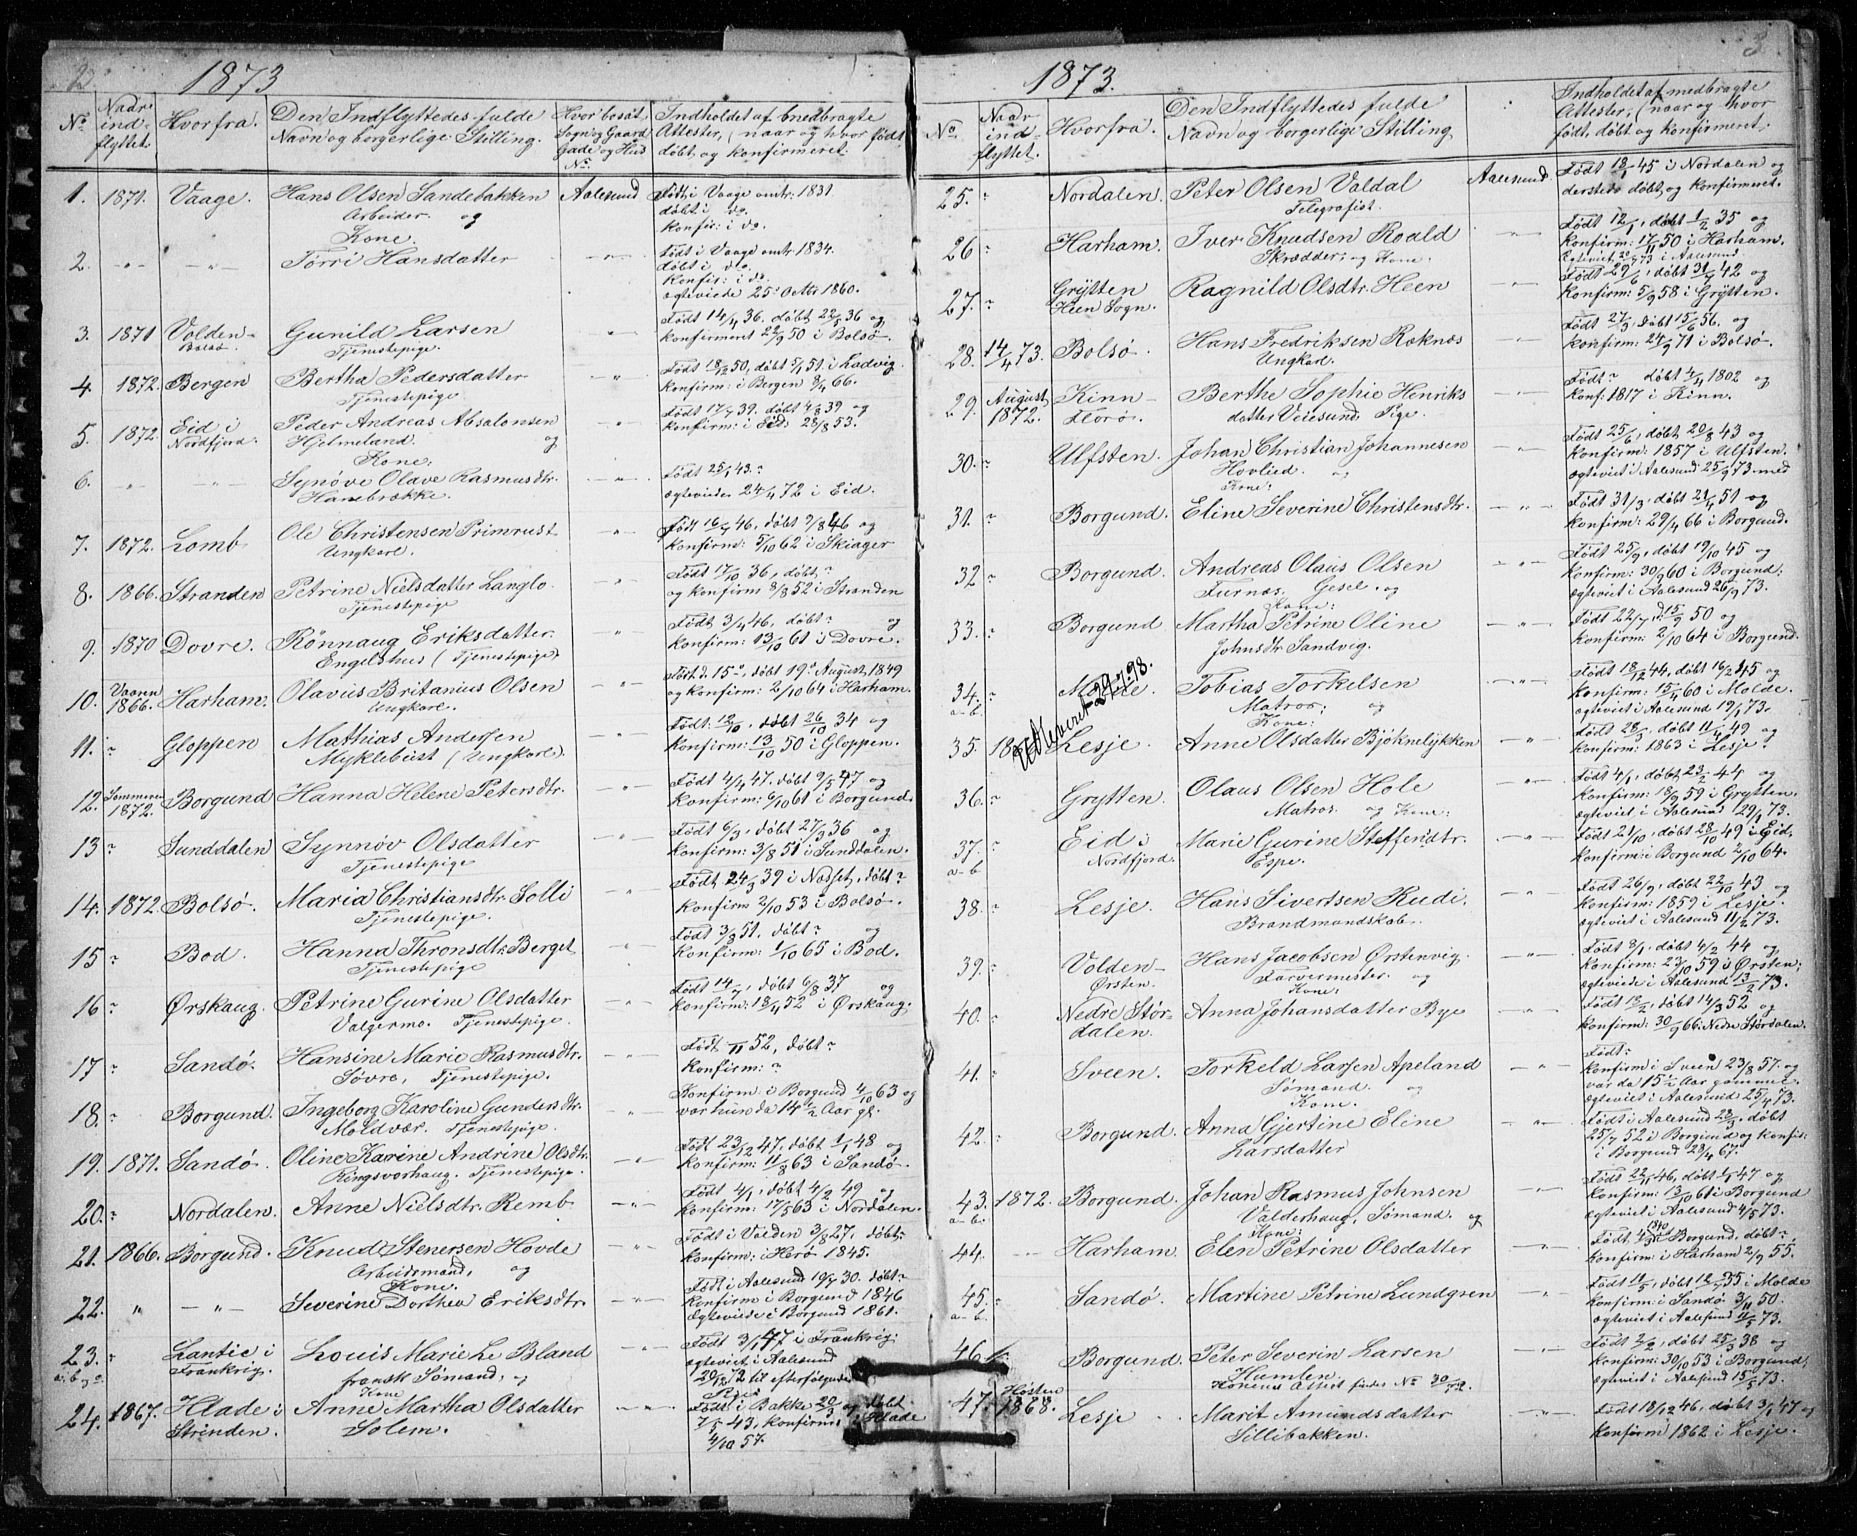 2.
1873
No.
Naar
ind-
flyttet.
Hvorfra.
Den Indflyttedes fulde
Navn og borgerlige Stilling.
Hvor bosat,
Sogn og Gaard
Gade og Hus
No.
Indholdet af medbragte
Attester, (naar og hvor født
døbt og konfirmeret.
1. 1871. Vaage. Hans Olsen Sandebakken Aalesund Født i Vaage omtr: 1831
Arbeider. og døbt i do.
Kone. konfir: i do.
2. -„- -„- Törri Hansdatter -„- Født i Vaage omtr: 1834.
døbt i do.
Konfir: i do.
ægteviede 25de Octbr 1860.
3. 1871 Volden- Gunild Larsen -„- Født 14/4 36. døbt 22/5 36 og
Bolsø. Tjenestepige. konfirmeret 22/9 50 i Bolsø.
4 1872. Bergen Bertha Pedersdatter „ Født 18/12 50, døbt 5/1 51. i Ladvig
Tjenestepige. konfirm: i Bergen 8/4 66.
5. 1872. Eid i Peder Andreas Absalonsen -„- Født 17/7 39. døbt 4/8 39 og
Nordfjord. Hjelmeland. og konfirm: i Eid 28/8 53.
Kone.
6. „ -„- Synøve Olave Rasmusdtr. Født 25/1 43.?
Hanebrække. ægteviede 24/4 72 i Eid.
7. 1872. Lomb Ole Christensen Primrust -„- Født 16/7 46, døbt 9/8 46 og
Ungkarl. konfirm: 5/10 62 i Skiager
8. 1866. Stranden Petrine Nielsdatter Langlo. -„- Født 17/10 36, døbt ?
Tjenestepige og konfirm 8/8 52 i Stranden
9. 1870 Dovre. Rönnaug Eriksdatter -„- Født 3/4 46, døbt ? og
Engelshus (Tjenestepige) konfirm: 13/10 61 i Dovre.
10. Vaaren Harham. Olavus Britanius Olsen -„- Født d. 15de, døbt 19de August 1849
1866. Ungkarl. og konfirm: 2/10 64 i Harham.
11. ? Gloppen Mathias Andersen -„- Født: 12/10, døbt 26/10 34 og
Myklebust (Ungkarl.) konfirm: 13/10 50 i Gloppen.
12. Sommeren Borgund Hanna Helene Petersdtr. -„- Født 4/4 47. døbt 9/5 47 og
1872. konfirm: 6/10 61 i Borgund.
13 ? Sunddalen Synnøv Olsdatter -„- Født 6/3, døbt 27/3 36 og
Tjenestepige konfirm: 3/8 51 i Sunddalen.
14. 1872. Bolsø. Maria Christiansdtr. Solli „ Født 24/3 39 i Nesset, døbt ?
Tjenestepige. konfirm 2/10 53 i Bolsø.
15 ? Bod. Hanna Thronsdtr. Berget „ Født 3/8 51. døbt ? og
Tjenestepige konfirm: 1/10 65 i Bod.
16 ? Ørskaug. Petrine Gurine Olsdatter -„- Født 14/7, døbt 6/8 37 og
Valgermo. Tjenestepige. konfirm: 18/4 52 i Ørskaug.
17 ? Sandø. Hansine Marie Rasmusdtr. -„- Født /11 52, døbt ?
Søvre, Tjenestepige. konfirm: ?
18. ? Borgund. Ingeborg Karoline Gundersdtr. -„- Konfirm i Borgund 4/10 63 og
Moldvær. Tjenestepige. var hun da 14 1/2 Aar gl.
19. 1871. Sandø. Oline Karine Andrine Olsdtr. -„- Født 23/12 47, døbt 1/1 48 og
Ringsvorhaug. Tjenestepige. konfirm: 11/8 63 i Sandø.
20. ? Nordalen. Anne Nielsdtr. Remb -„- Født 4/1, døbt 4/2 49 og
konfirm: 17/5 63 i Nordalen.
21. 1866. Borgund. Knud Stenersen Hovde -„- Født i Volden 3/8 27, døbt,
Arbeidsmand, og konfirm: i Herø 1845.
Kone.
22. „ -„- Severine Dorthea Eriksdtr. -„- Født i Aalesund 19/7 30. døbt ?
konfirm i Borgund 1846
ægteviede i Borgund 1861.
23. ? Lantic i Louis Marie Le Bland -„- Født 3/1 47 i Frankrig;
a. b. og c. Frankrig. fransk Sømand, og ægteviet i Aalesund
Kone 20/12 72 til efterfølgende
24. 1867. Hlade i Anne Martha Olsdatter -„- Født i Bakke 20/3 og døbt
Strinden. Solem. 7/5 43, konfirm: i Hlade
4/10 57.
3
1873.
No.
Naar
ind-
flyttet.
Hvorfra.
Den Indflyttedes fulde
Navn og borgerlige Stilling
Indholdet af medbragte
Attester, (naar og hvor
født, døbt og konfirmeret.
25. ? Nordalen. Peter Olsen Valdal Aalesund Født 18/1 45 i Nordalen og
Telegrafist. dersteds døbt og konfirmeret.
26 ? Harham. Iver Knudsen Roald -„- Født 12/1, døbt 1/2 35 og
Skrædder, og Kone: konfirm: 17/11 50 i Harham.
Egteviet 20/4 73 i Aalesund
27. ? Grytten Ragnild Olsdtr. Heen -„- Født 29/6, døbt 31/7 42 og
Heen Sogn. konfirm: 5/9 58 i Grytten.
28. 14/4 73. Bolsø. Hans Fredriksen Røknæs -„- Født 27/3, døbt 15/6 56. og
Ungkarl. konfirm: 24/9 71 i Bolsø.
29. August Kinn- Berthe Sophie Henriks -„- Født ? døbt 4/4 1802 og
1872. Florø. datter Veiesund. Pige. Konf: 1817 i Kinn.
30. ? Ulfsten. Johan Christian Johannesen -„- Født 25/6, døbt 20/8 43 og
Hovlied. og konfirm: 1857 i Ulfsten.
Kone: ægteviet i Aalesund 25/9 73. med
31. ? Borgund. Eline Severine Christensdtr. -„- Født 31/3, døbt 21/4 51 og
konfirm: 29/4 66 i Borgund.
32 ? Borgund. Andreas Olaus Olsen -„- Født 25/9, døbt 19/10 45 og
Furnæs. Gesel. og konfirm: 30/9 60 i Borgund:
Kone: ægteviet i Aalesund 26/9 73.
33. ? Borgund Martha Petrine Oline -„- Født 22/7 d. 15/9 50 og
Johnsdtr. Sandvig. konfirm: 2/10 64 i Borgund.
34. ? Molde. Tobias Torkelsen -„- Født 18/12 44, døbt 16/2 45 og
a-b. Matros; og konfirm: 15/4 60 i Molde.
Kone: ægteviet i Aalesund 19/1 73.
Utleveret 29-7-98.
35. Lesje. Anne Olsdatter Bjøknelykken -„- Født 28/3, døbt 11/4 49 og
konfirm: 1863 i Lesje ?
36. ? Grytten. Olaus Olsen Hole -„- Født 4/1, døbt 23/2 44 og
Matros. og Kone: konfirm: 18/9 59 i Grytten.
ægteviet i Aalesund 29/1 73.
37. ? Eid i Marie Gurine Steffensdtr. -„- Født 21/10, døbt 28/10 49 i Eid.
a-b Nordfjord. Espe. konfirm: i Borgund 2/10 64.
38. ? Lesje. Hans Sivertsen Rudi. -„- Født 26/9, døbt 22/10 43 og
Brandmandskab. konfirm: 1859 i Lesje.
ægteviet i Aalesund 11/2 73.
39. ? Volden- Hans Jacobsen Ørstenvig. -„- Født 8/1, døbt 4/2 44 og
Ørsten. Farvermester. og konfirm: 23/10 59 i Ørsten;
Kone: ægteviede i Aalesund 13/2 73.
40. ? Nedre Stør- Anna Johansdatter Bye -„- Født 13/2, døbt 14/3 52 og
dalen. konfirm: 30/9 66. Nedre Størdalen.
41. ? Sveen. Torkeld Larsen Apeland -„- Født ?
Sømand. og konfirm i Sveen 23/8 57. og
Kone. var da 15 1/2 Aar gammel.
ægteviet i Aalesund 25/4 73.
42. ? Borgund. Anna Gjertine Eline -„- Født i Aalesund 23/3. døbt
Larsdatter 25/7 52 i Borgund og konfir:
i Borgund 29/4 67.
43. 1872. Borgund. Johan Rasmus Johnsen -„- Født 22/11 46, døbt 1/1 47 og
a-b. Valderhaug, Sømand. og konfirm: 13/10 61 i Borgund
Kone: ægteviet i Aalesund 4/5 73.
44. -„- Harham. Elen Petrine Olsdatter -„- Født Borgund, døbt ?
konfirm: i Harham 2/9 55.
45. ? Sandø. Martine Petrine Lundgren „ Født 11/5, døbt 12/7 35 i Molde
a-b. konfirm: i Sandø 3/11 50.
ægteviet i Aalesund 11/5 73.
46 Borgund. Peter Severin Larsen -„- Født 2/2, døbt 25/3 38 og
Humlen. konfirm: 30/10 53 i Borgund,
Konens Attest findes No 30/72. ægteviet i Aalesund 15/5 73.
47. Høsten Lesje Marit Amundsdatter „ Født 18/12 46, døbt 3/1 47 og
1868. Sillibakken. konfirm: 1862 i Lesje.